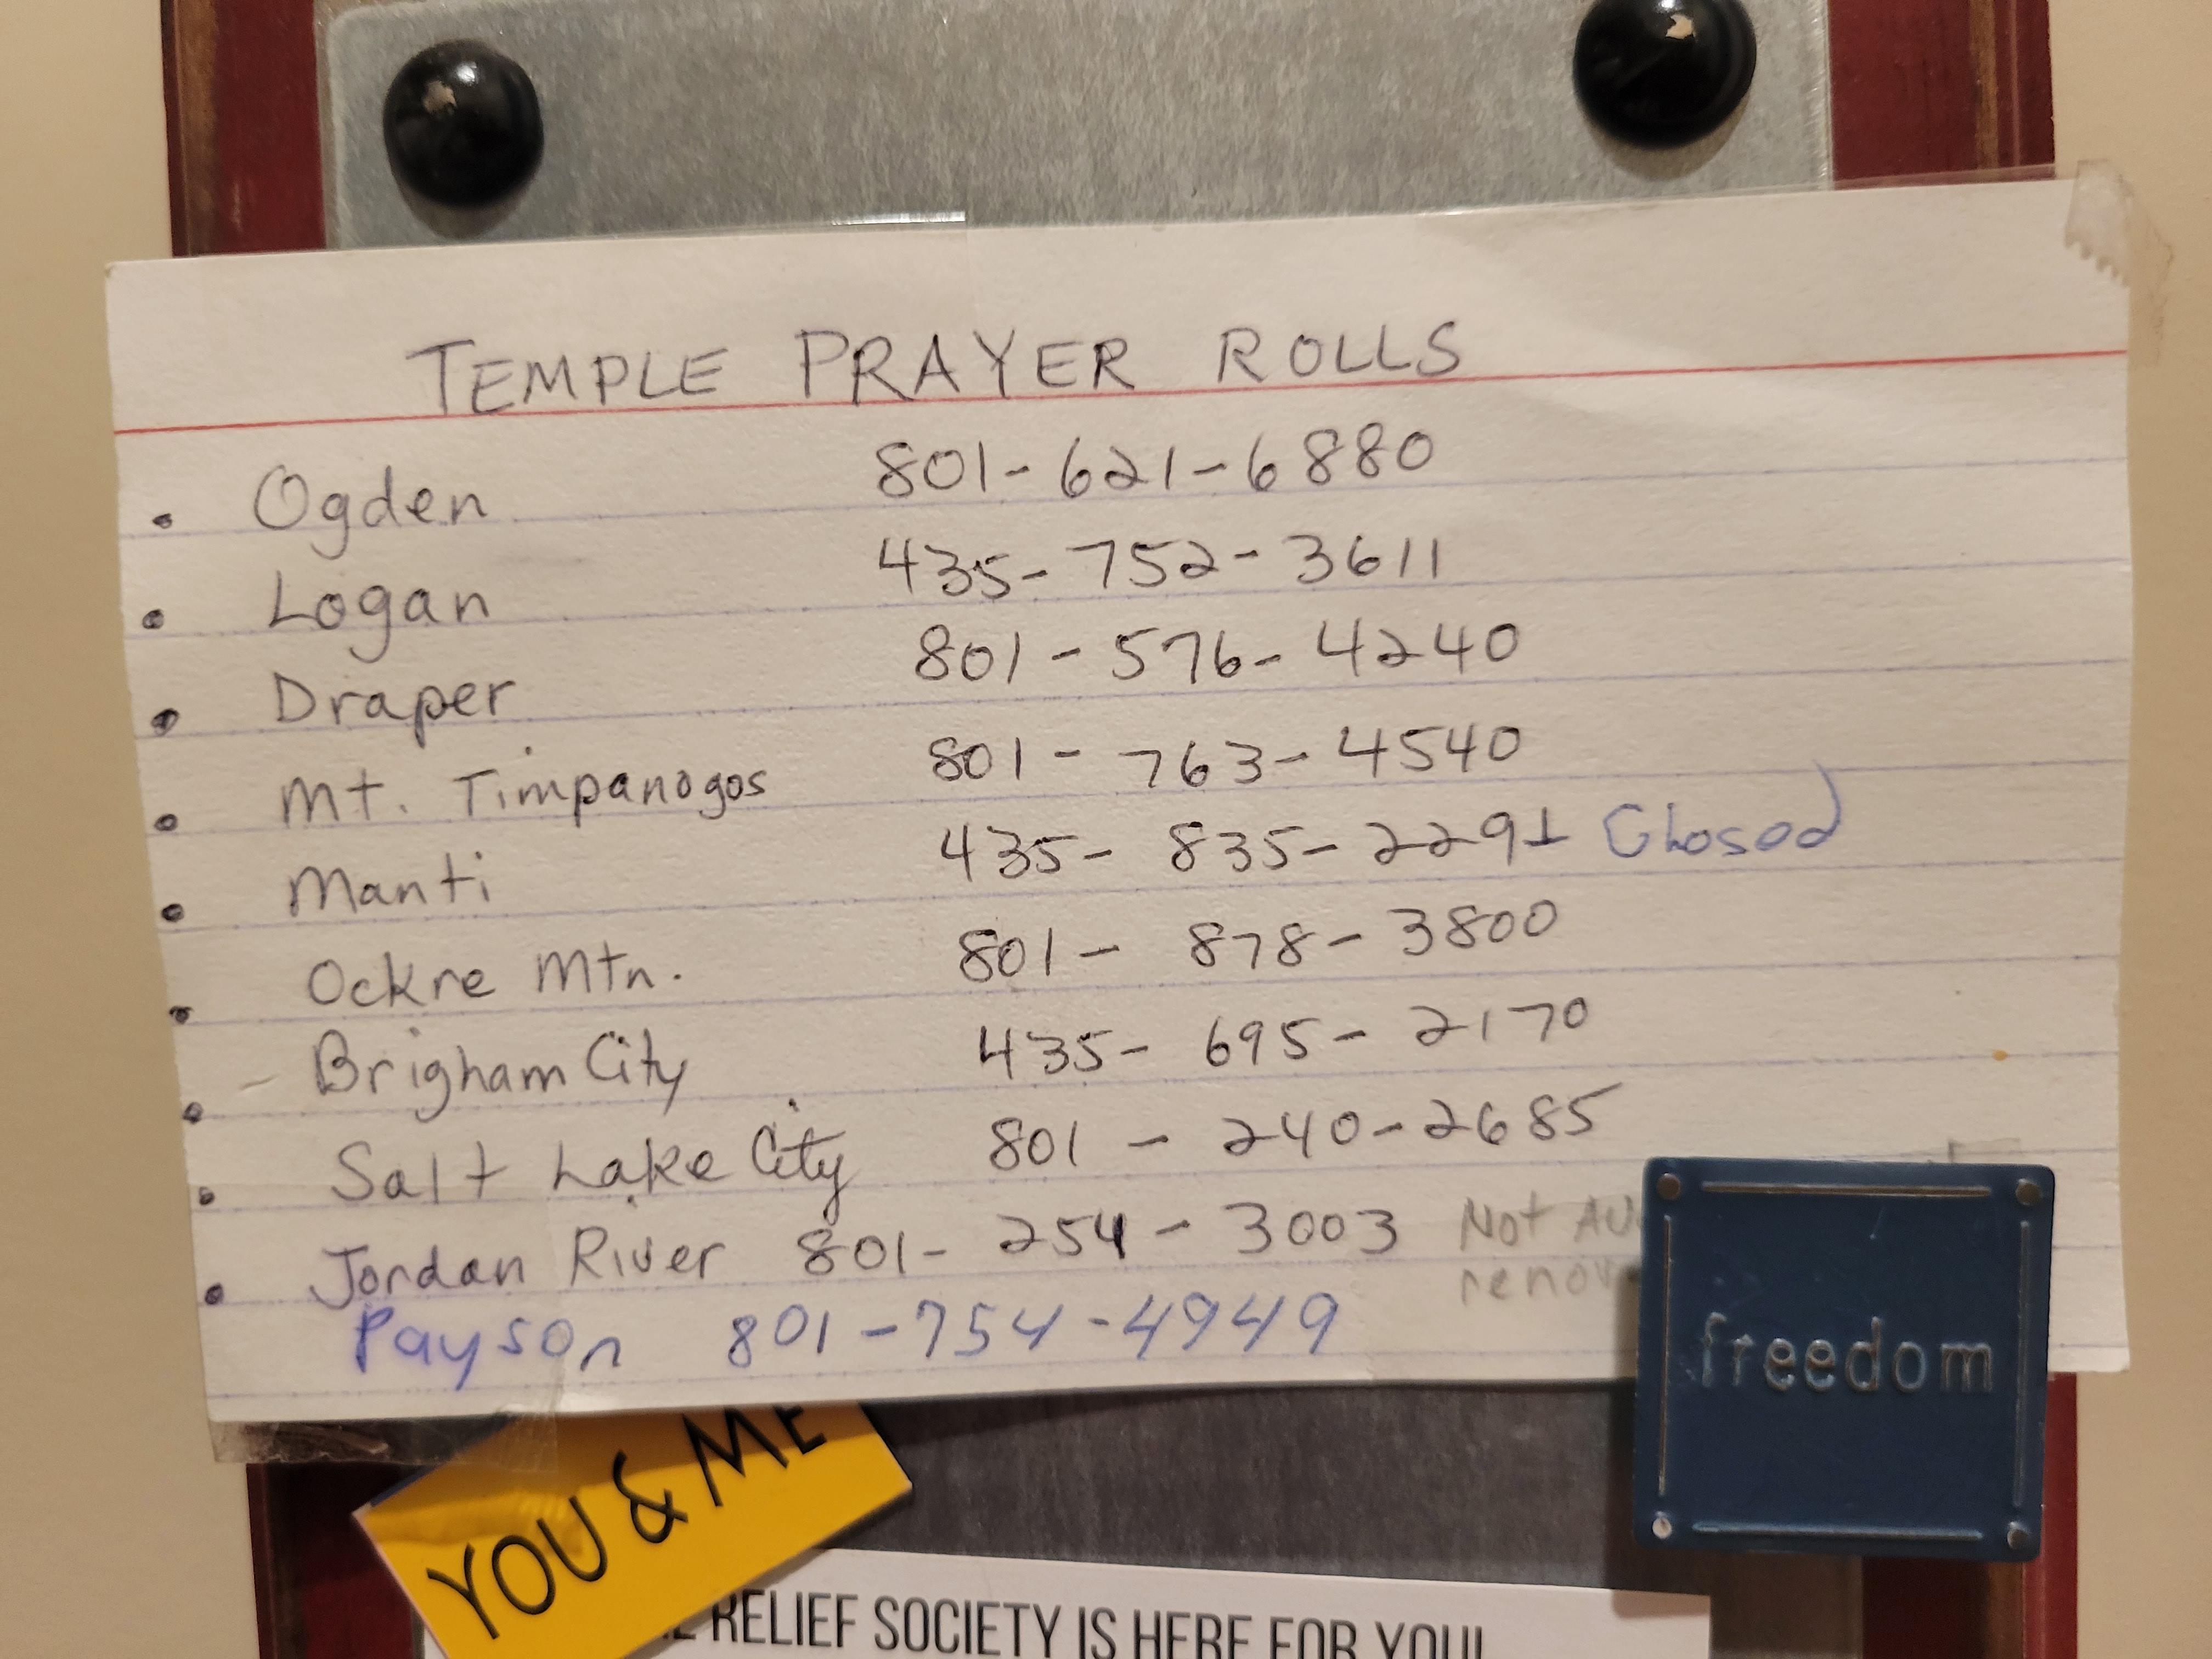 TEMPLE PRAYER ROLLS
• Ogden 801-621-6880
• Logan 435-752-3611
• Draper 801-576-4240
• Mt. Timpanogos 801-763-4540
• Manti 435-835-2291 Closed
• Ockre Mtn. 801-878-3800
• Brigham City 435-695-2170
• Salt Lake City 801-240-2685
• Jordan River 801-254-3003 Not
Payson 801-754-4949
freedom
YOU & ME
RELIEF SOCIETY IS HERE FOR YOU!